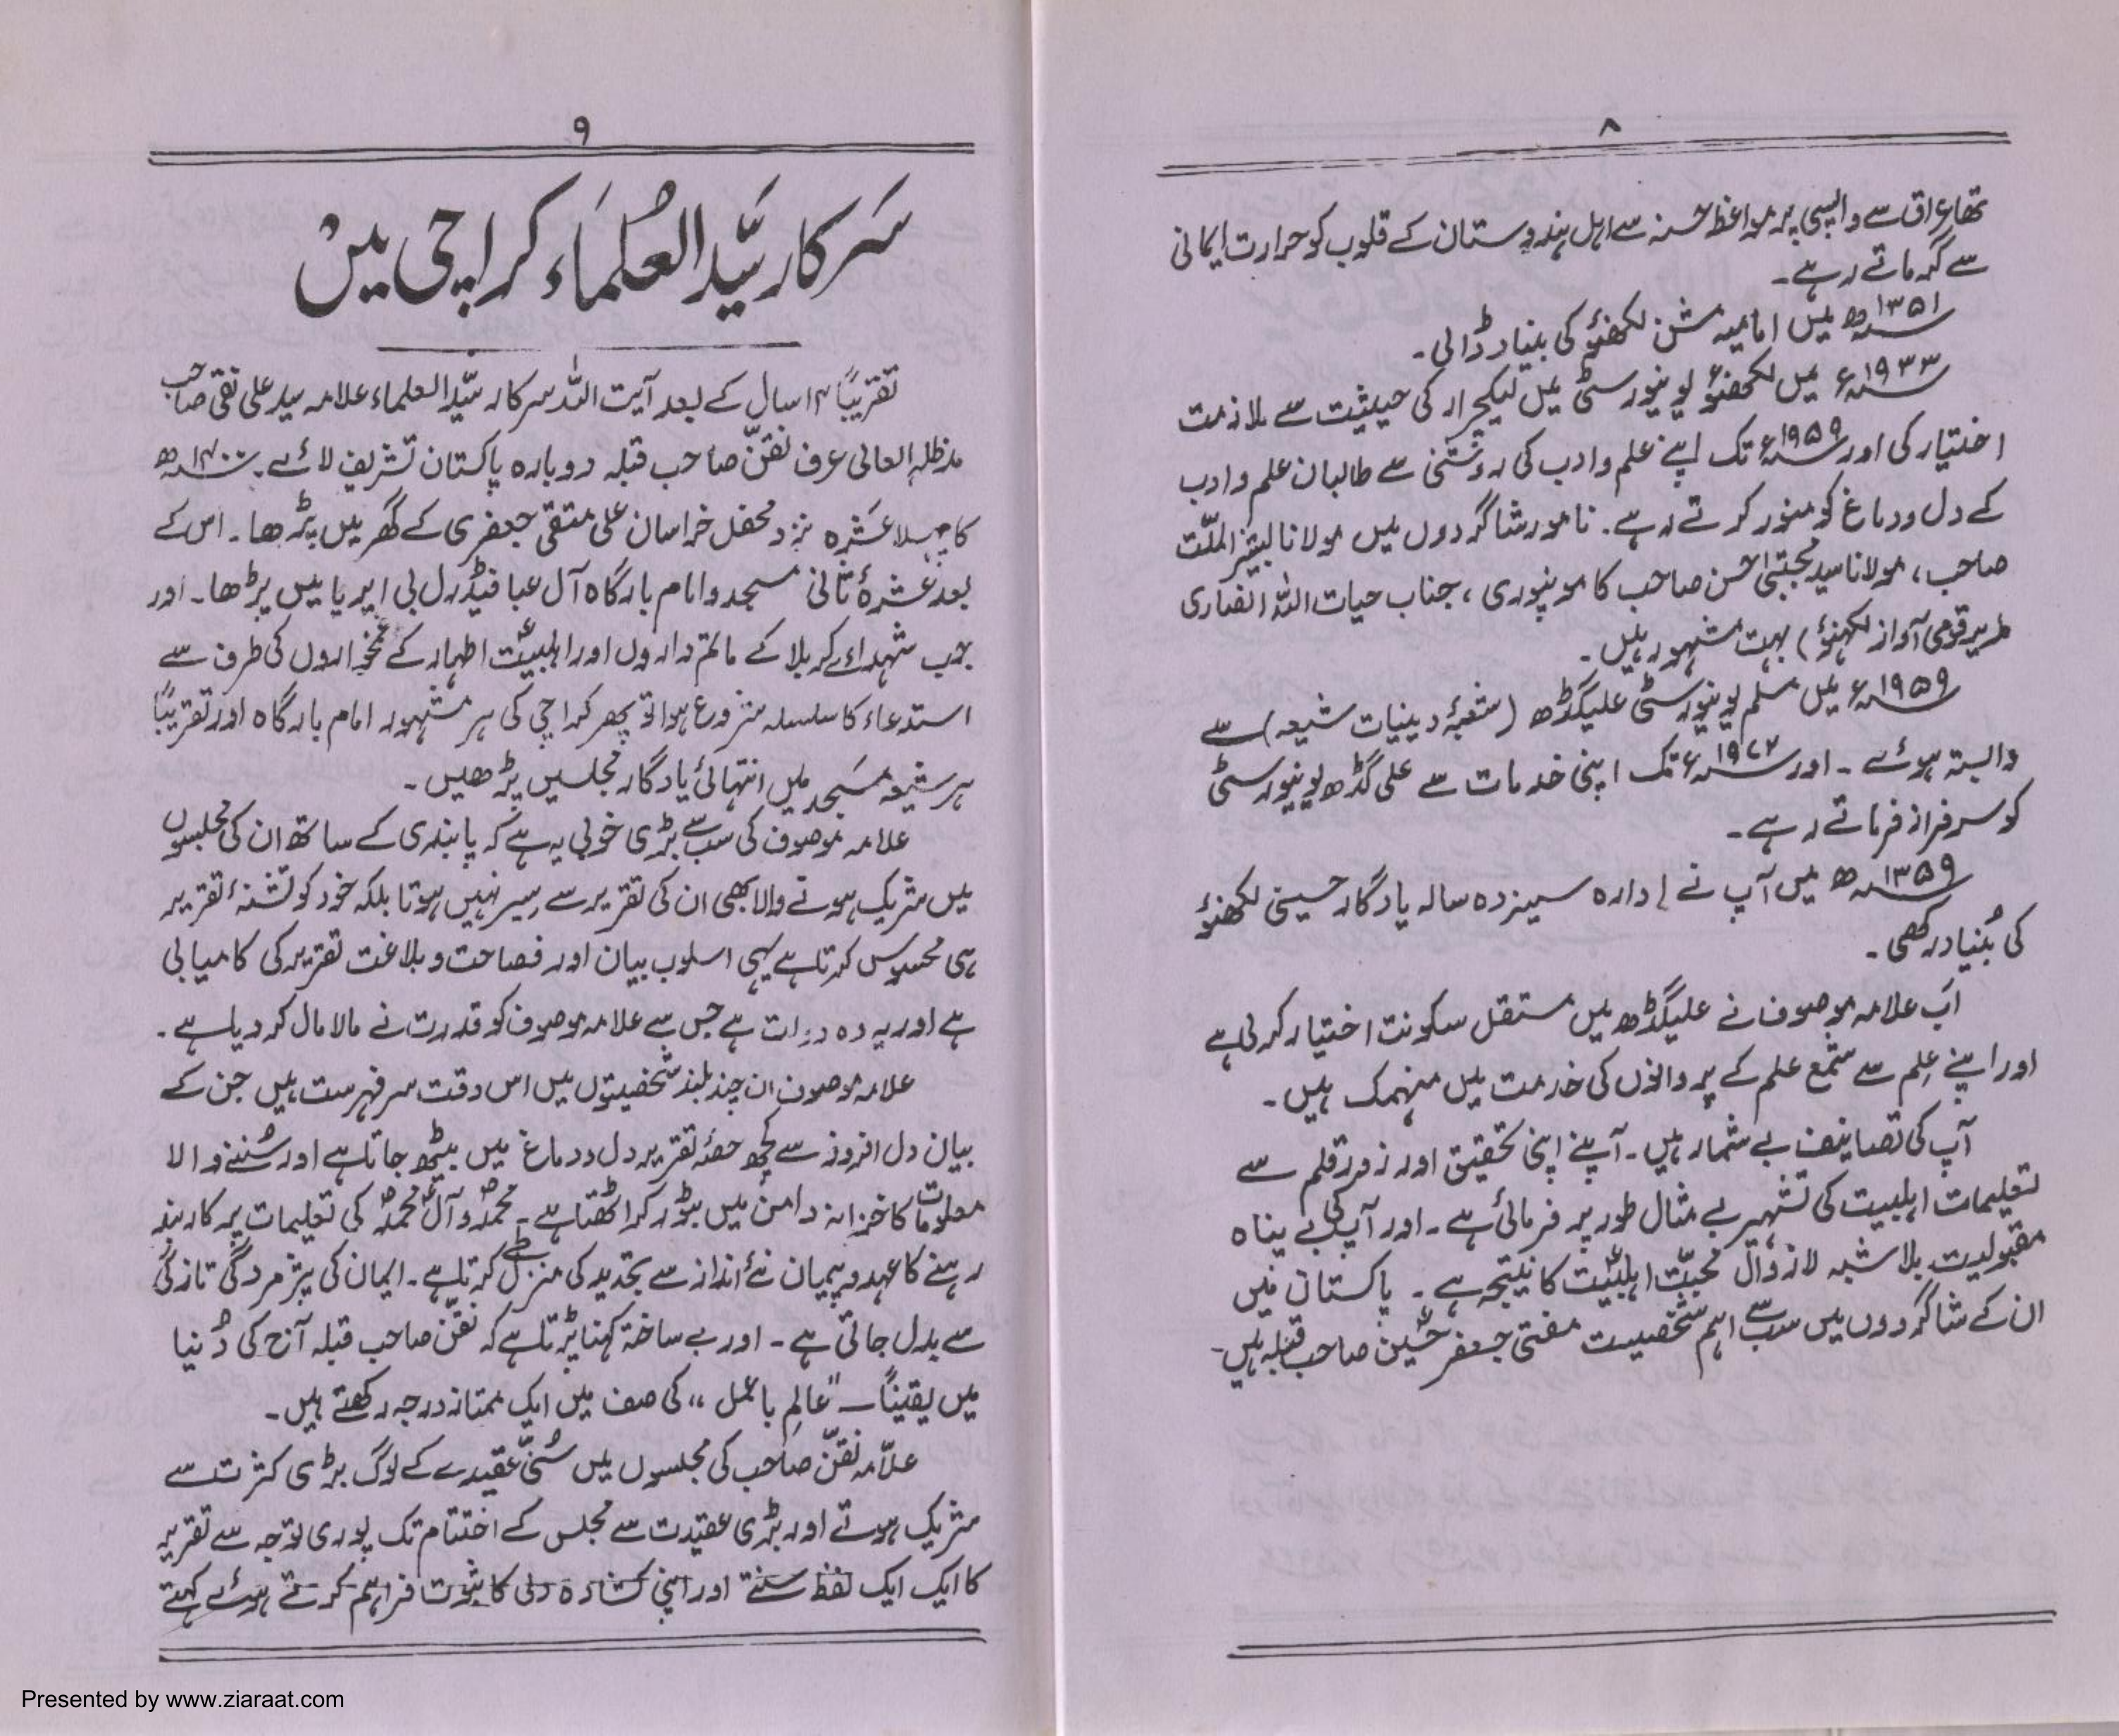 ۸
تھا عراق سے واپسی پر مواعظ حسنہ سے اہل ہندوستان کے قلوب کو حرارت ایمانی
سے گرماتے رہے۔
۱۳۵۱ھ میں امامیہ مشن لکھنؤ کی بنیاد ڈالی۔
۱۹۳۳ء میں لکھنؤ یونیورسٹی میں لیکچرار کی حیثیت سے ملازمت
اختیار کی اور ۱۹۵۹ء تک اپنے علم و ادب کی روشنی سے طالبان علم و ادب
کے دل و دماغ کو منور کرتے رہے۔ نامور شاگردوں میں مولانا
صاحب، مولانا سید مجتبیٰ حسن صاحب کامونپوری، جناب حیات اللہ انصاری
مدیر قومی آواز لکھنؤ) بہت مشہور ہیں۔
۱۹۵۹ء میں مسلم یونیورسٹی علیگڈھ (شعبۂ دینیات شیعہ) سے
وابستہ ہوئے۔ اور ۱۹۷۲ء تک اپنی خدمات سے علی گڈھ یونیورسٹی
کو سرفراز فرماتے رہے۔
۱۳۵۹ھ میں آپ نے ادارہ سیزدہ سالہ یادگار حسینی لکھنؤ
کی بُنیاد رکھی۔
اَب علامہ موصوف نے علیگڈھ میں مستقل سکونت اختیار کر لی ہے
اور اپنے عِلم سے شمع علم کے پروانوں کی خدمت میں منہمک ہیں۔
آپ کی تصانیف بے شمار ہیں۔ آپنے اپنی تحقیق اور زورِ قلم سے
تعلیمات اہلبیت کی تشہیر بے مثال طور پر فرمائی ہے۔ اور آپ کی بے پناہ
مقبولیت بلاشبہ لازوال محبّت اہلبیتؑ کا نتیجہ ہے۔ پاکستان میں
ان کے شاگردوں میں سب سے اہم شخصیت مفتی جعفر حُسین صاحب قبلہ ہیں۔
۹
سَرکار سَیّد العُلمَاء کراچی میں
تقریباً ۱۴ سال کے بعد آیت اللہ سرکار سیّد العلماء علامہ سید علی نقی صاحب
مدظلہ العالی عرف نقّن صاحب قبلہ دوبارہ پاکستان تشریف لائے۔ ۱۴۰۰ھ
کا پہلا عَشرہ نزد محفل خراسان علی متقی جعفری کے گھر میں پڑھا۔ اس کے
بعد عشرۂ ثانی مسجد و امام بارگاہ آل عبا فیڈرل بی ایریا میں پڑھا۔ اور
جب شہداء کربلا کے ماتم داروں اور اہلبیتؑ اطہار کے غمخواروں کی طرف سے
استدعاء کا سلسلہ شروع ہوا تو پھر کراچی کی ہر مشہور امام بارگاہ اور تقریباً
ہر شیعہ مسَجد میں انتہائی یادگار مجلسیں پڑھیں۔
علامہ موصوف کی سب سے بڑی خوبی یہ ہے کہ پابندی کے ساتھ ان کی مجلسوں
میں شریک ہونے والا بھی ان کی تقریر سے سیر نہیں ہوتا بلکہ خود کو تشنۂ تقریر
ہی محسوس کرتا ہے یہی اسلوب بیان اور فصاحت و بلاغت تقریر کی کامیابی
ہے اور یہ وہ دولت ہے جس سے علامہ موصوف کو قدرت نے مالا مال کر دیا ہے۔
علامہ موصوف ان چند بلند شخصیتوں میں اس وقت سر فہرست ہیں جن کے
بیان دل افروز سے کچھ حصۂ تقریر دل و دماغ میں بیٹھ جاتا ہے اور سُننے والا
معلومات کا خزانہ دامن میں بٹور کر اٹھتا ہے۔ محمدؐ و آلِ محمدؐ کی تعلیمات پر کاربند
رہنے کا عہد و پیمان نئے انداز سے تجدید کی منزل طے کرتا ہے۔ ایمان کی پژمردگی تازگی
سے بدل جاتی ہے۔ اور بے ساختہ کہنا پڑتا ہے کہ نقّن صاحب قبلہ آج کی دُنیا
میں یقیناً ”عالِم باعمل“ کی صف میں ایک ممتاز درجہ رکھتے ہیں۔
علاّمہ نقّن صاحب کی مجلسوں میں سُنّی عقیدے کے لوگ بڑی کثرت سے
شریک ہوتے اور بڑی عقیدت سے مجلس کے اختتام تک پوری توجہ سے تقریر
کا ایک ایک لفظ سنتے اور اپنی کشادہ دلی کا ثبوت فراہم کرتے ہوئے کہتے
Presented by www.ziaraat.com